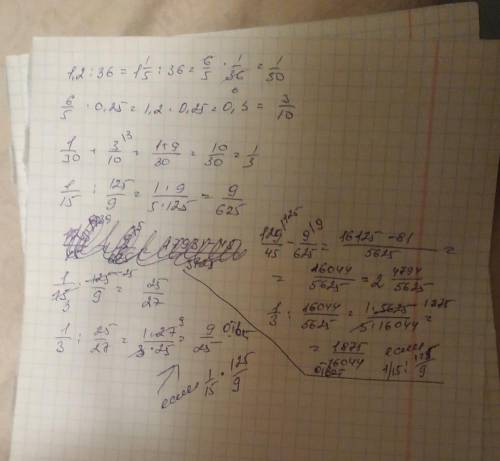 1,2 : 36 = 1 1/5 : 36 = 6/5 · 1/36 = 1/30
6/5 · 0,25 = 1,2 · 0,25 = 0,3 = 3/10
1/30 + 3/10 = 1+9/30 = 10/30 = 1/3
1/15 : 125/9 = 1·9/5·125 = 9/625
1/15 · 125/9 = 25/27
1/3 : 25/27 = 1·27/3·25 = 9/25
если 1/15 · 125/9
129/45 - 9/625 = 16125-81/5625 =
= 16044/5625 = 2 4794/5625
1/3 : 16044/5625 = 1·5625/3·16044 =
= 1875/16044 если
1/15 : 125/9